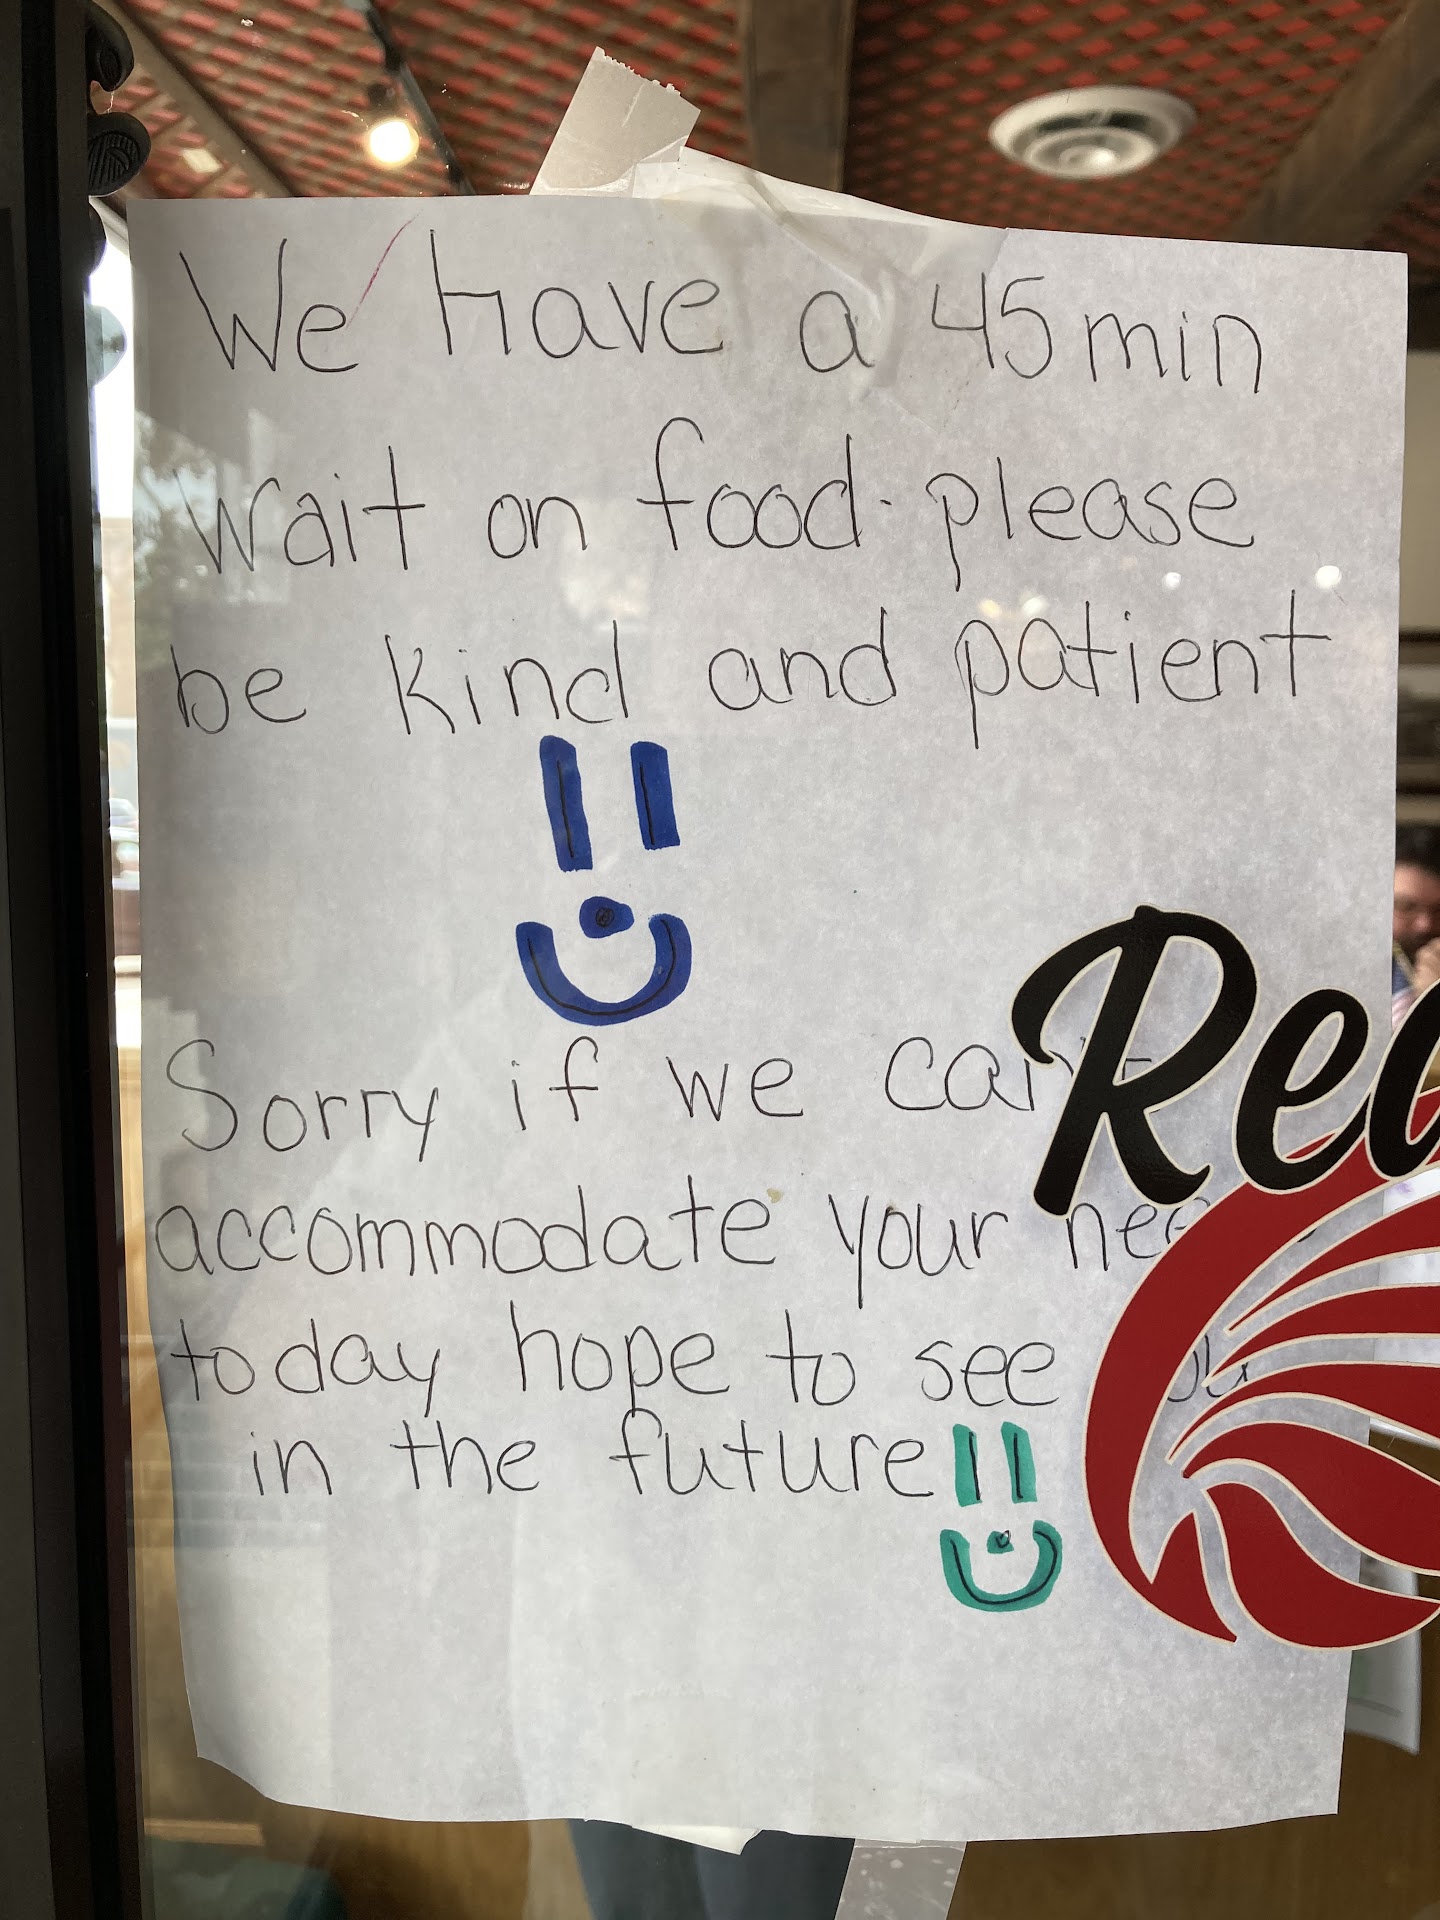 We have a 45 min
wait on food. please
be kind and patient
Sorry if we can't
accommodate your
today hope to see
in the future